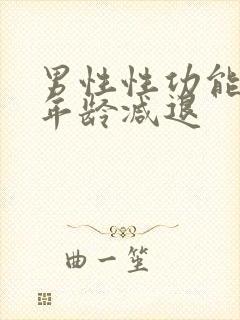 男性性功能
年龄减退
曲一笙